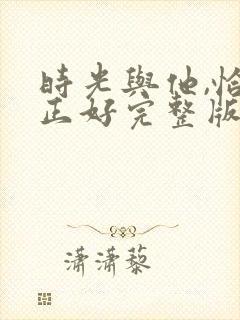 時光與他,恰
正好完整版
瀟瀟藜